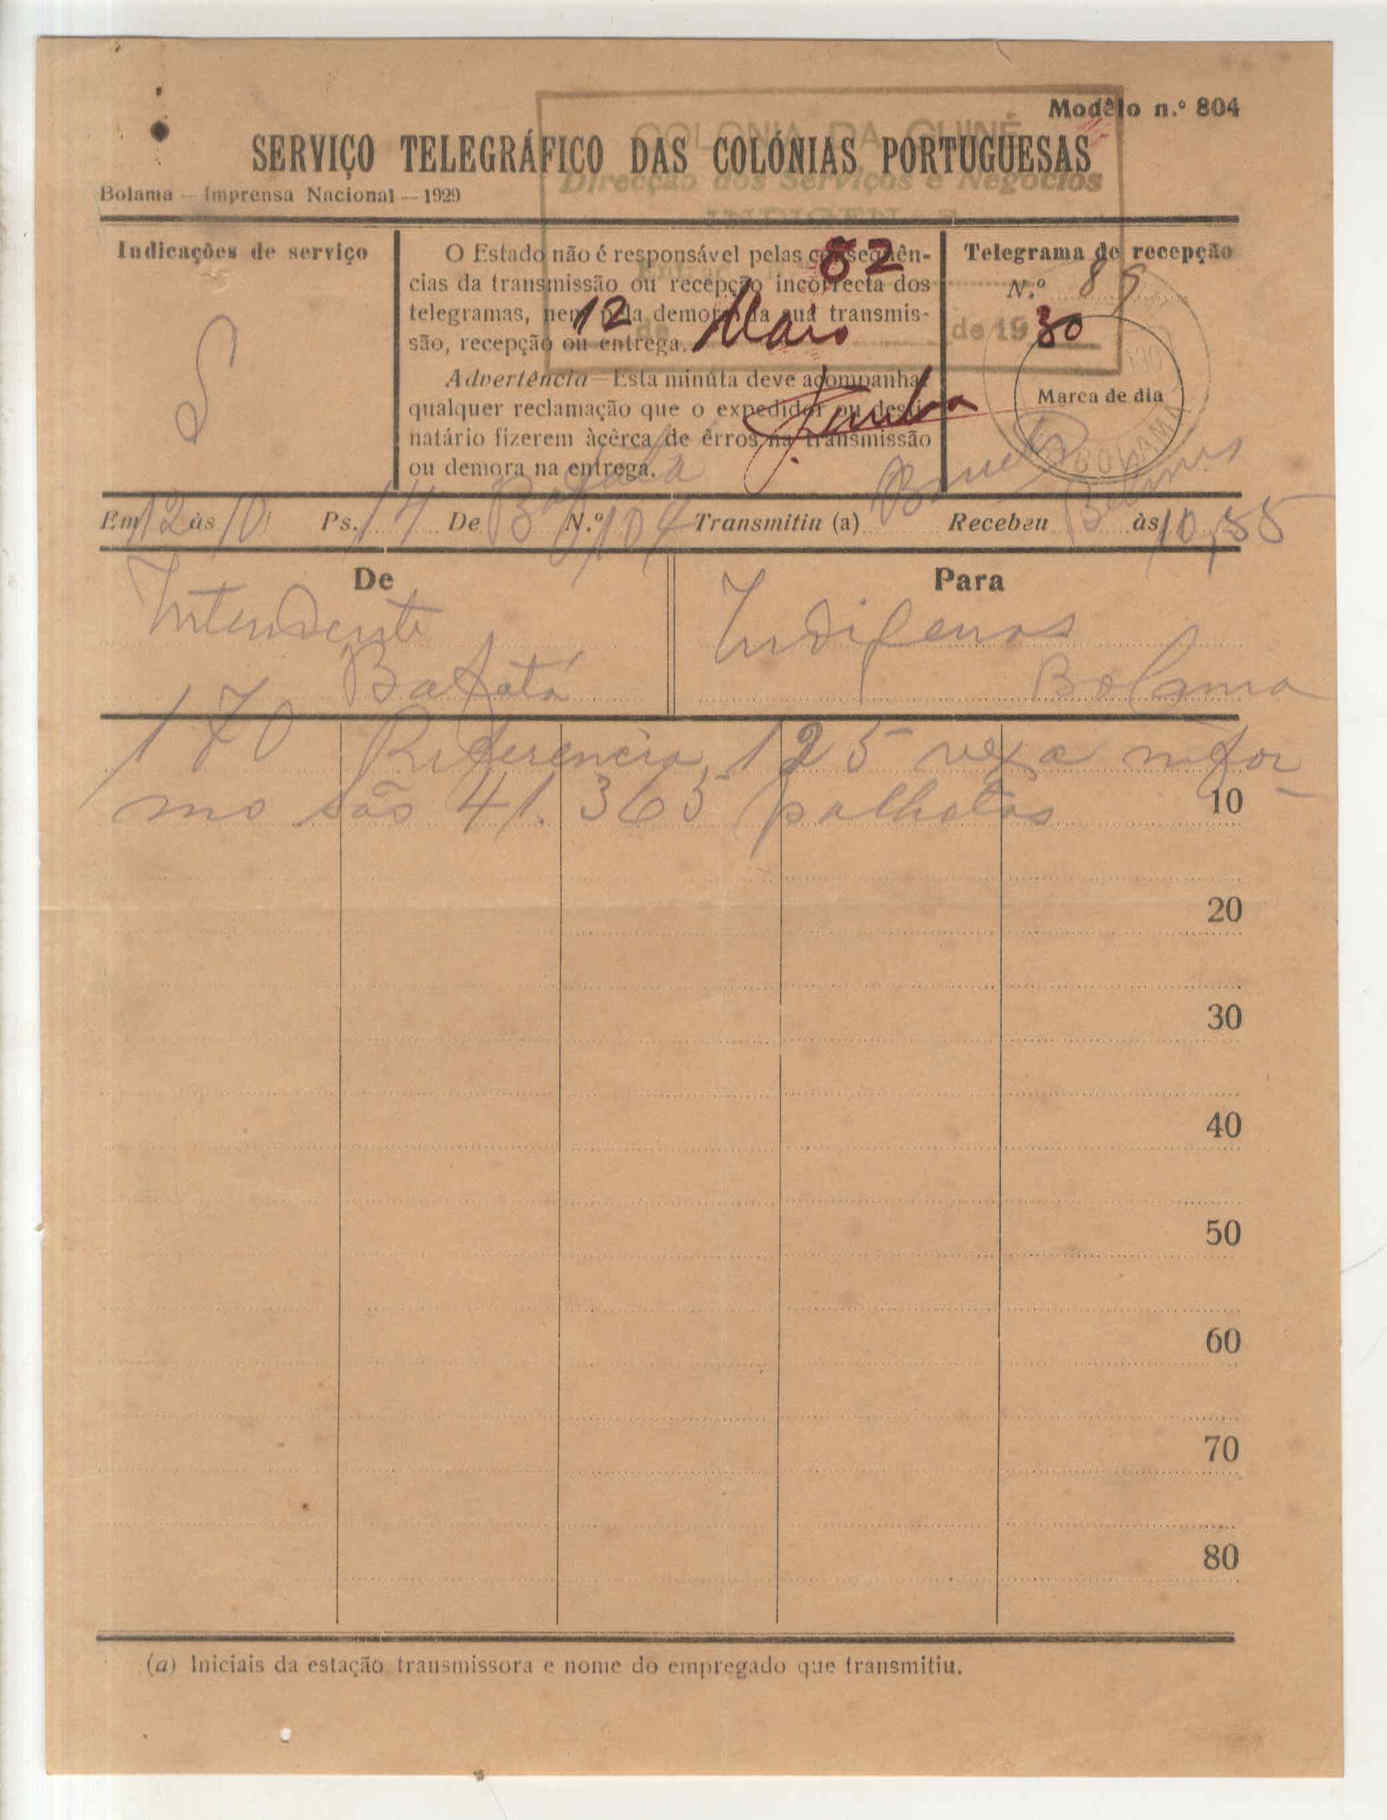 Modêlo n.º 804
COLONIA DA GUINÉ
SERVIÇO TELEGRÁFICO DAS COLÓNIAS PORTUGUESAS
Direcção dos Serviços e Negócios
Bolama — Imprensa Nacional — 1929
Indicações de serviço
S
O Estado não é responsável pelas consequên-
cias da transmissão ou recepção incorrecta dos
telegramas, nem pela demora na sua transmis-
são, recepção ou entrega.
Advertência — Esta minuta deve acompanhar
qualquer reclamação que o expedidor ou desti-
natário fizerem àcêrca de êrros na transmissão
ou demora na entrega.
82
12 de Maio de 1930
Telegrama de recepção
N.º 89
Marca de dia
BOLAMA
Em 12 às 10 Ps. 14 De Bafatá N.º 104 Transmitiu (a) Recebeu às 10,55
De
Intendente
Bafatá
Para
Indigenas
Bolama
170 Referencia 125 vexa infor-
mo são 41.365 palhotas
10
20
30
40
50
60
70
80
(a) Iniciais da estação transmissora e nome do empregado que transmitiu.